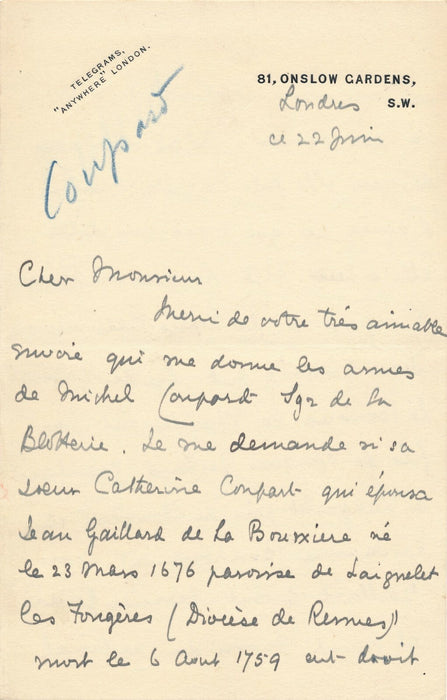 TELEGRAMS,
"ANYWHERE" LONDON.
81, ONSLOW GARDENS,
Londres S.W.
ce 22 Juin
Coupard
Cher Monsieur
Merci de votre très aimable
envoie qui me donne les armes
de Michel Coupard Sgr de la
Blotterie. Je me demande si sa
soeur Catherine Coupart qui épousa
Jean Gaillard de La Bourxiere né
le 23 Mars 1676 paroisse de Laignelet
les Fongères (Diocèse de Rennes)
mort le 6 Aout 1759 eut droit